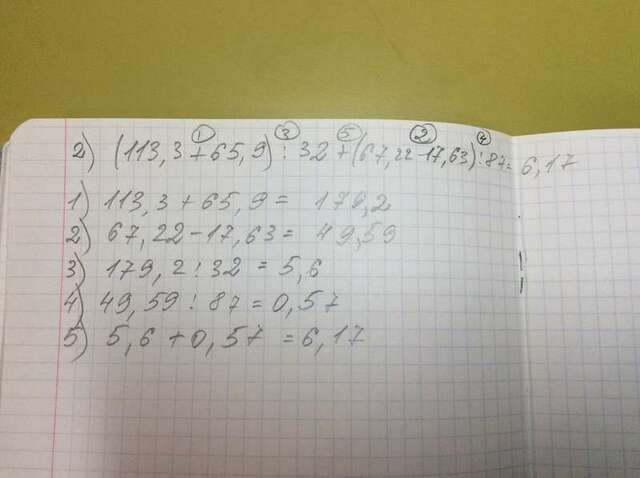 ① ③ ⑤ ② ④
2) (113,3+65,9):32+(67,22-17,63):87=6,17
1) 113,3+65,9= 179,2
2) 67,22-17,63= 49,59
3) 179,2:32=5,6
4) 49,59:87=0,57
5) 5,6+0,57=6,17